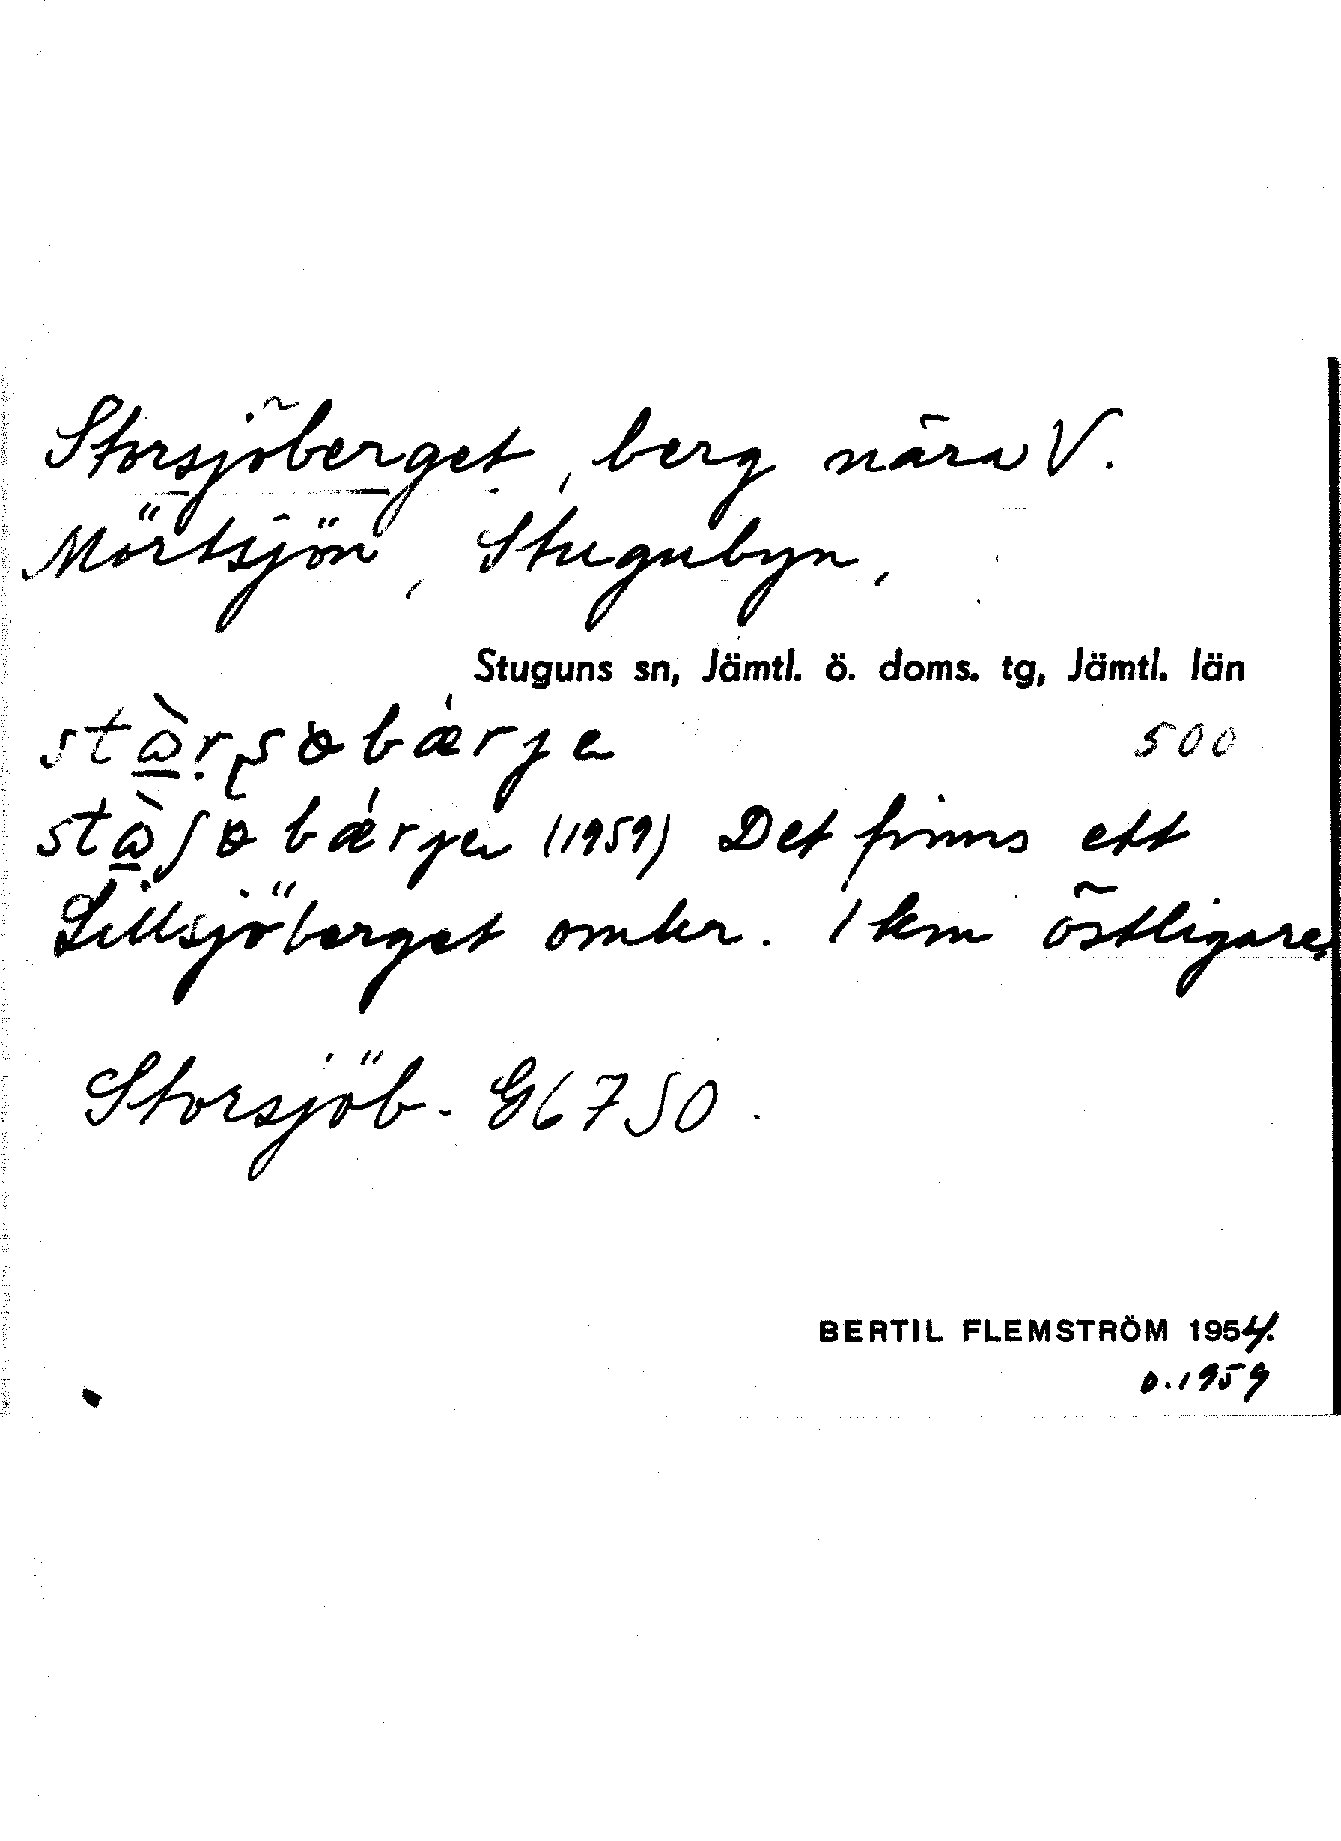 Storsjöberget, berg nära V.
Mörtsjön, Stugubyn,
Stuguns sn, Jämtl. ö. doms. tg, Jämtl. län
500
(1959) Det finns ett
Lillsjöberget omkr. 1 km östligare.
Storsjöb. G6750.
BERTIL FLEMSTRÖM 1954.
o. 1959